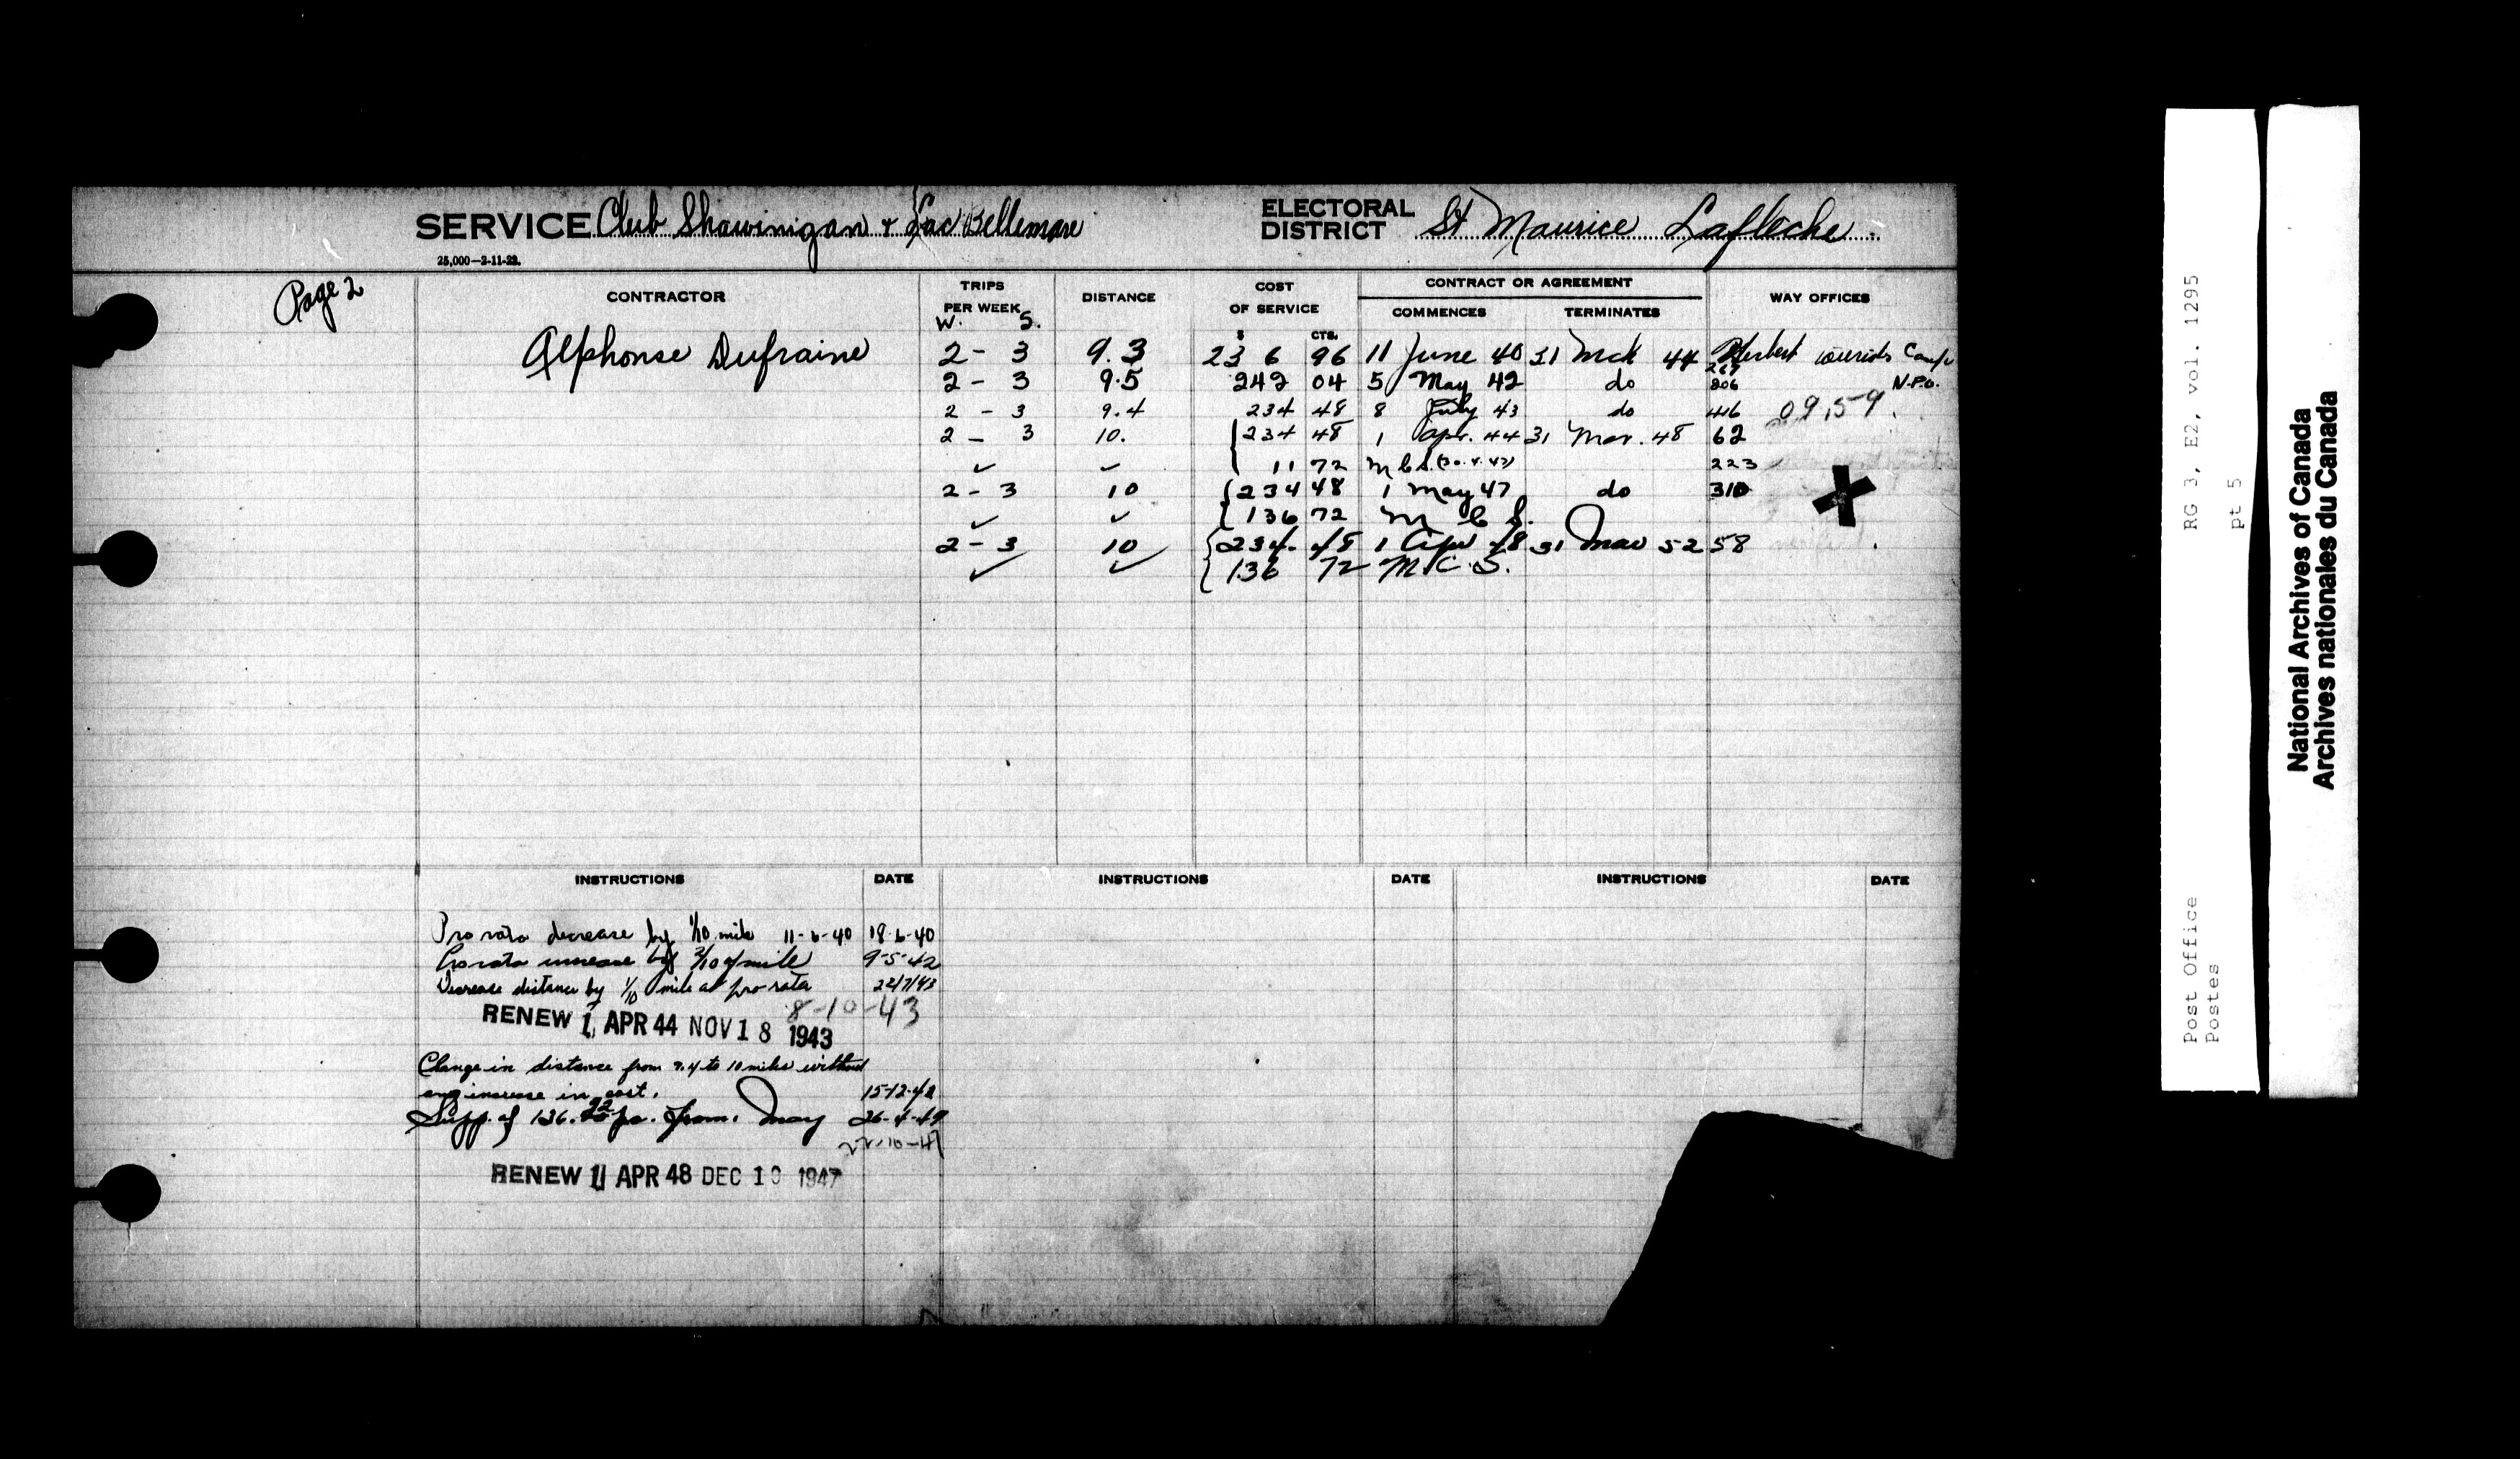 SERVICE Club Shawinigan & Lac Bellemare ELECTORAL DISTRICT St Maurice Lafleche
25,000—2-11-29.
Page 2
CONTRACTOR TRIPS PER WEEK DISTANCE COST OF SERVICE CONTRACT OR AGREEMENT WAY OFFICES
W. S. $ CTS. COMMENCES TERMINATES
Alphonse Dufraine 2 - 3 9.3 236 96 11 June 40 31 Mch 44 Herbert Camp
2 - 3 9.5 242 04 5 May 42 do 206 N.P.O.
2 - 3 9.4 234 48 8 July 43 do 416 09,59
2 - 3 10. 234 48 1 Apr. 44 31 Mar. 48 62
✓ ✓ 11 72 223
2 - 3 10 234 48 1 May 47 do 310
✓ ✓ 136 72 M C S.
2 - 3 10 234 48 1 Apr 48 31 Mar 52 58
✓ ✓ 136 72 M.C.S.
INSTRUCTIONS DATE INSTRUCTIONS DATE INSTRUCTIONS DATE
Pro rata decrease by 1/10 mile 11-6-40 18-6-40
Pro rata increase by 2/10 of mile 9-5-42
Decrease distance by 1/10 mile at pro rata 22/7/43
8-10-43
RENEW 1 APR 44 NOV 18 1943
Change in distance from 9.4 to 10 miles without
any increase in cost.
Supp. of 136.72 pa. from 1 May 26-4-47
22-10-47
RENEW 1 APR 48 DEC 10 1947
RG 3, E2, vol. 1295
pt 5
Post Office
Postes
National Archives of Canada
Archives nationales du Canada